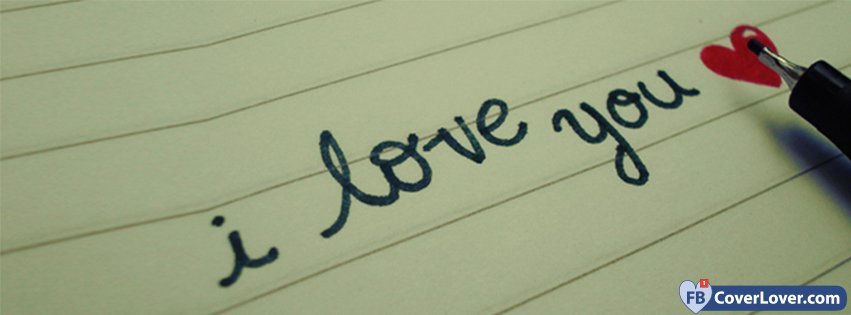 i love you
FB CoverLover.com